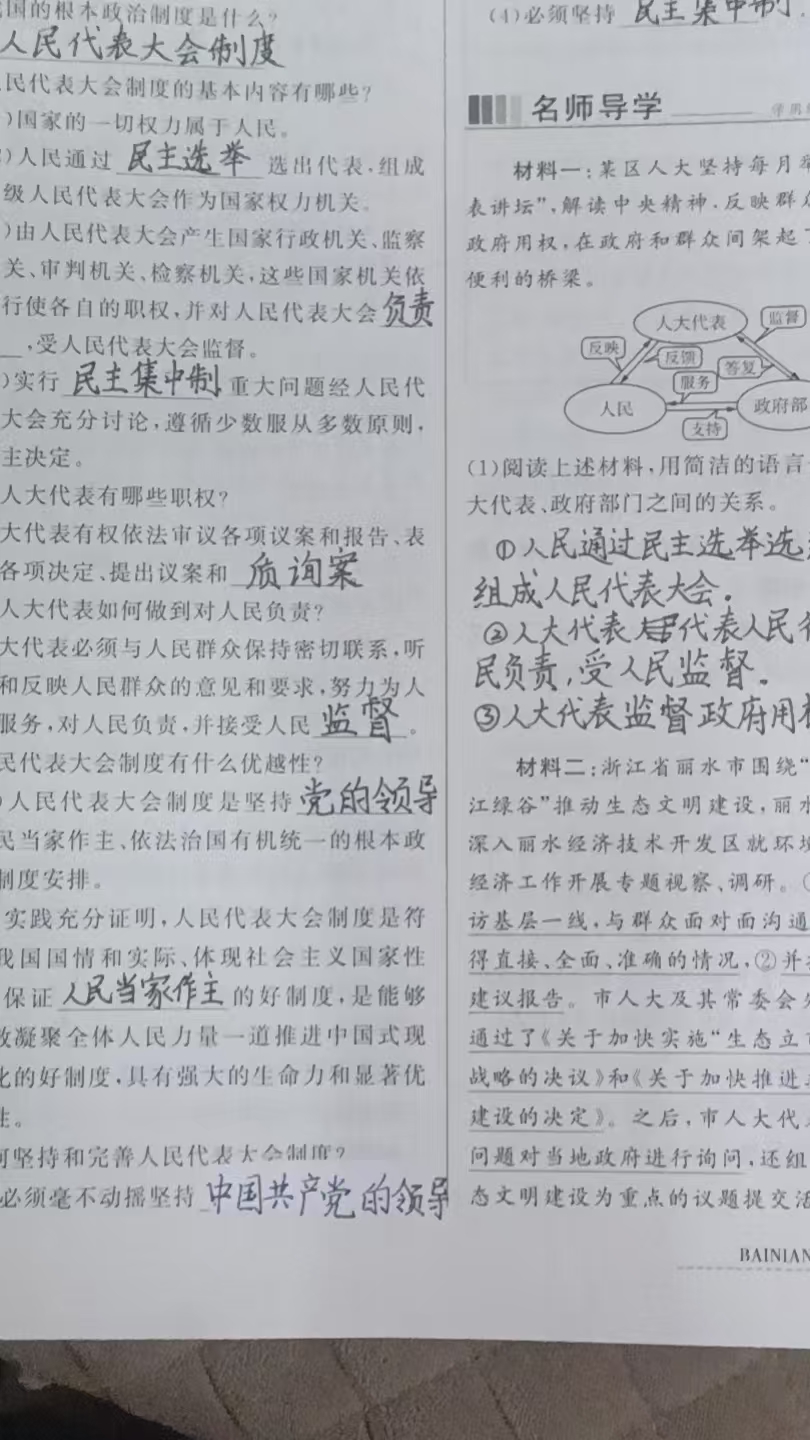 国的根本政治制度是什么?
人民代表大会制度
民代表大会制度的基本内容有哪些?
)国家的一切权力属于人民。
)人民通过 民主选举 选出代表,组成
级人民代表大会作为国家权力机关。
)由人民代表大会产生国家行政机关、监察
关、审判机关、检察机关,这些国家机关依
行使各自的职权,并对人民代表大会 负责
,受人民代表大会监督。
)实行 民主集中制 重大问题经人民代
大会充分讨论,遵循少数服从多数原则,
主决定。
人大代表有哪些职权?
大代表有权依法审议各项议案和报告、表
各项决定、提出议案和 质询案
人大代表如何做到对人民负责?
大代表必须与人民群众保持密切联系,听
和反映人民群众的意见和要求,努力为人
服务,对人民负责,并接受人民 监督 。
民代表大会制度有什么优越性?
)人民代表大会制度是坚持 党的领导
民当家作主、依法治国有机统一的根本政
制度安排。
实践充分证明,人民代表大会制度是符
我国国情和实际、体现社会主义国家性
保证 人民当家作主 的好制度,是能够
效凝聚全体人民力量一道推进中国式现
化的好制度,具有强大的生命力和显著优
性。
何坚持和完善人民代表大会制度?
必须毫不动摇坚持 中国共产党的领导
(4)必须坚持 民主集中制 .
名师导学
材料一:某区人大坚持每月举
表讲坛”,解读中央精神.反映群众
政府用权,在政府和群众间架起了
便利的桥梁。
人大代表
监督
反映
反馈
答复
服务
人民
政府部
支持
(1)阅读上述材料,用简洁的语言
大代表、政府部门之间的关系。
①人民通过民主选举选
组成人民代表大会.
②人大代表 代表人民
民负责,受人民监督.
③人大代表监督政府用权
材料二:浙江省丽水市围绕“
江绿谷”推动生态文明建设,丽水
深入丽水经济技术开发区就环境
经济工作开展专题视察、调研。
访基层一线,与群众面对面沟通
得直接、全面、准确的情况,②并
建议报告。市人大及其常委会
通过了《关于加快实施“生态立市
战略的决议》和《关于加快推进
建设的决定》。之后,市人大代
问题对当地政府进行询问,还组
态文明建设为重点的议题提交
BAINIAN